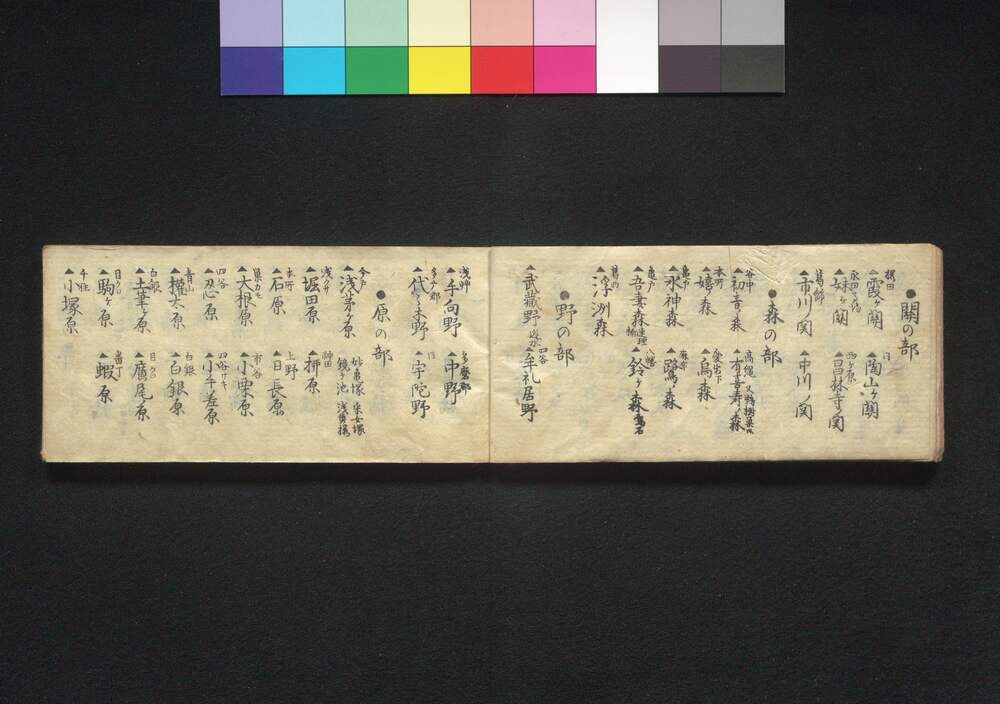 ●関の部
桜田 ▲霞ヶ関 同 ▲陶山ヶ関
▲妹ヶ関 ▲昌林寺ノ関
葛飾 ▲市川関 ▲市川ノ関
●森の部
谷中 ▲初音ノ森 高縄 ▲有喜寿ノ森
本所 ▲嬉ノ森 愛宕下 ▲烏森
亀戸 ▲水神森 麻布 ▲鷺森
亀戸 ▲吾妻森 八幡 ▲鈴ヶ森
▲浮洲森
●野の部
▲武蔵野 四谷 ▲牟礼居野
浅草 ▲手向野 多摩郡 ▲中野
▲代々木野 同 ▲宇陀野
●原の部
今戸 ▲浅茅ヶ原 妙亀塚 采女塚 鏡ヶ池
浅クサ ▲堀田原 神田 ▲柳原
本所 ▲石原 上野 ▲日長原
巣カモ ▲大根原 市谷 ▲小栗原
四谷 ▲忍原 四谷サキ ▲小千差原
青山 ▲権太原 白銀 ▲白銀原
白銀 ▲土筆ヶ原 目クロ ▲鷹尾原
目クロ ▲駒ヶ原 番丁 ▲蝦原
千住 ▲小塚原